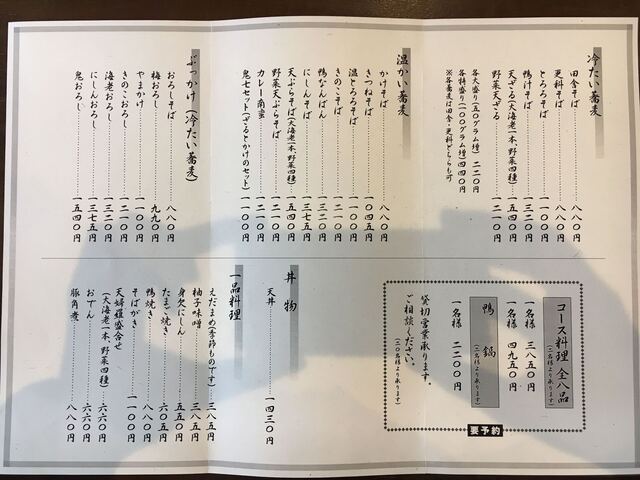 冷たい蕎麦
田舎そば 八八〇円
更科そば 八八〇円
とろろそば 一一〇〇円
鴨汁そば 一三二〇円
天ざる(大海老一本、野菜四種) 一五四〇円
野菜天ざる 一二一〇円
各大盛り(五〇グラム増) 二二〇円
各特盛り(一〇〇グラム増) 四四〇円
※各蕎麦は田舎・更科どちらも可
温かい蕎麦
かけそば 八八〇円
きつねそば 一〇四五円
温とろろそば 一一〇〇円
きのこそば 一二一〇円
鴨なんばん 一三二〇円
にしんそば 一三七五円
天ぷらそば(大海老一本、野菜四種) 一五四〇円
野菜天ぷらそば 一二一〇円
カレー南蛮 一二一〇円
鬼七セット(ざるとかけのセット) 一一〇〇円
ぶっかけ(冷たい蕎麦)
おろしそば 八八〇円
梅おろし 九九〇円
やまかけ 一一〇〇円
きのこおろし 一二一〇円
海老おろし 一三二〇円
にしんおろし 一三七五円
鬼おろし 一五四〇円
コース料理 全八品
(二名様より承ります)
一名様 三八五〇円
一名様 四九五〇円
鴨鍋
(二名様より承ります)
一名様 二二〇〇円
貸切営業承ります。
ご相談ください。
(二〇名様より承ります)
要予約
丼物
天丼 一四三〇円
一品料理
えだまめ(季節ものです) 三八五円
柚子味噌 三八五円
身欠にしん 五五〇円
たまご焼き 六〇五円
鴨焼き 八八〇円
そばがき 一一〇〇円
天婦羅盛合せ
(大海老一本、野菜四種) 六六〇円
おでん 六六〇円
豚角煮 八八〇円